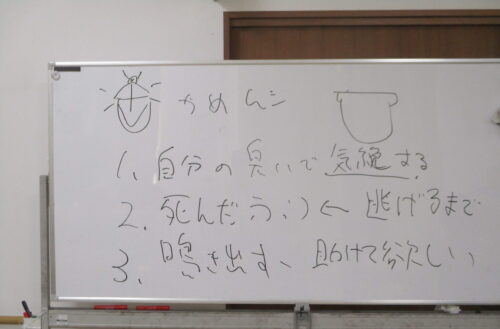 かめんシ
1. 自分の臭いで気絶する
2. 死んだふり ← 逃げるまで
3. 鳴き出す、助けて欲しい